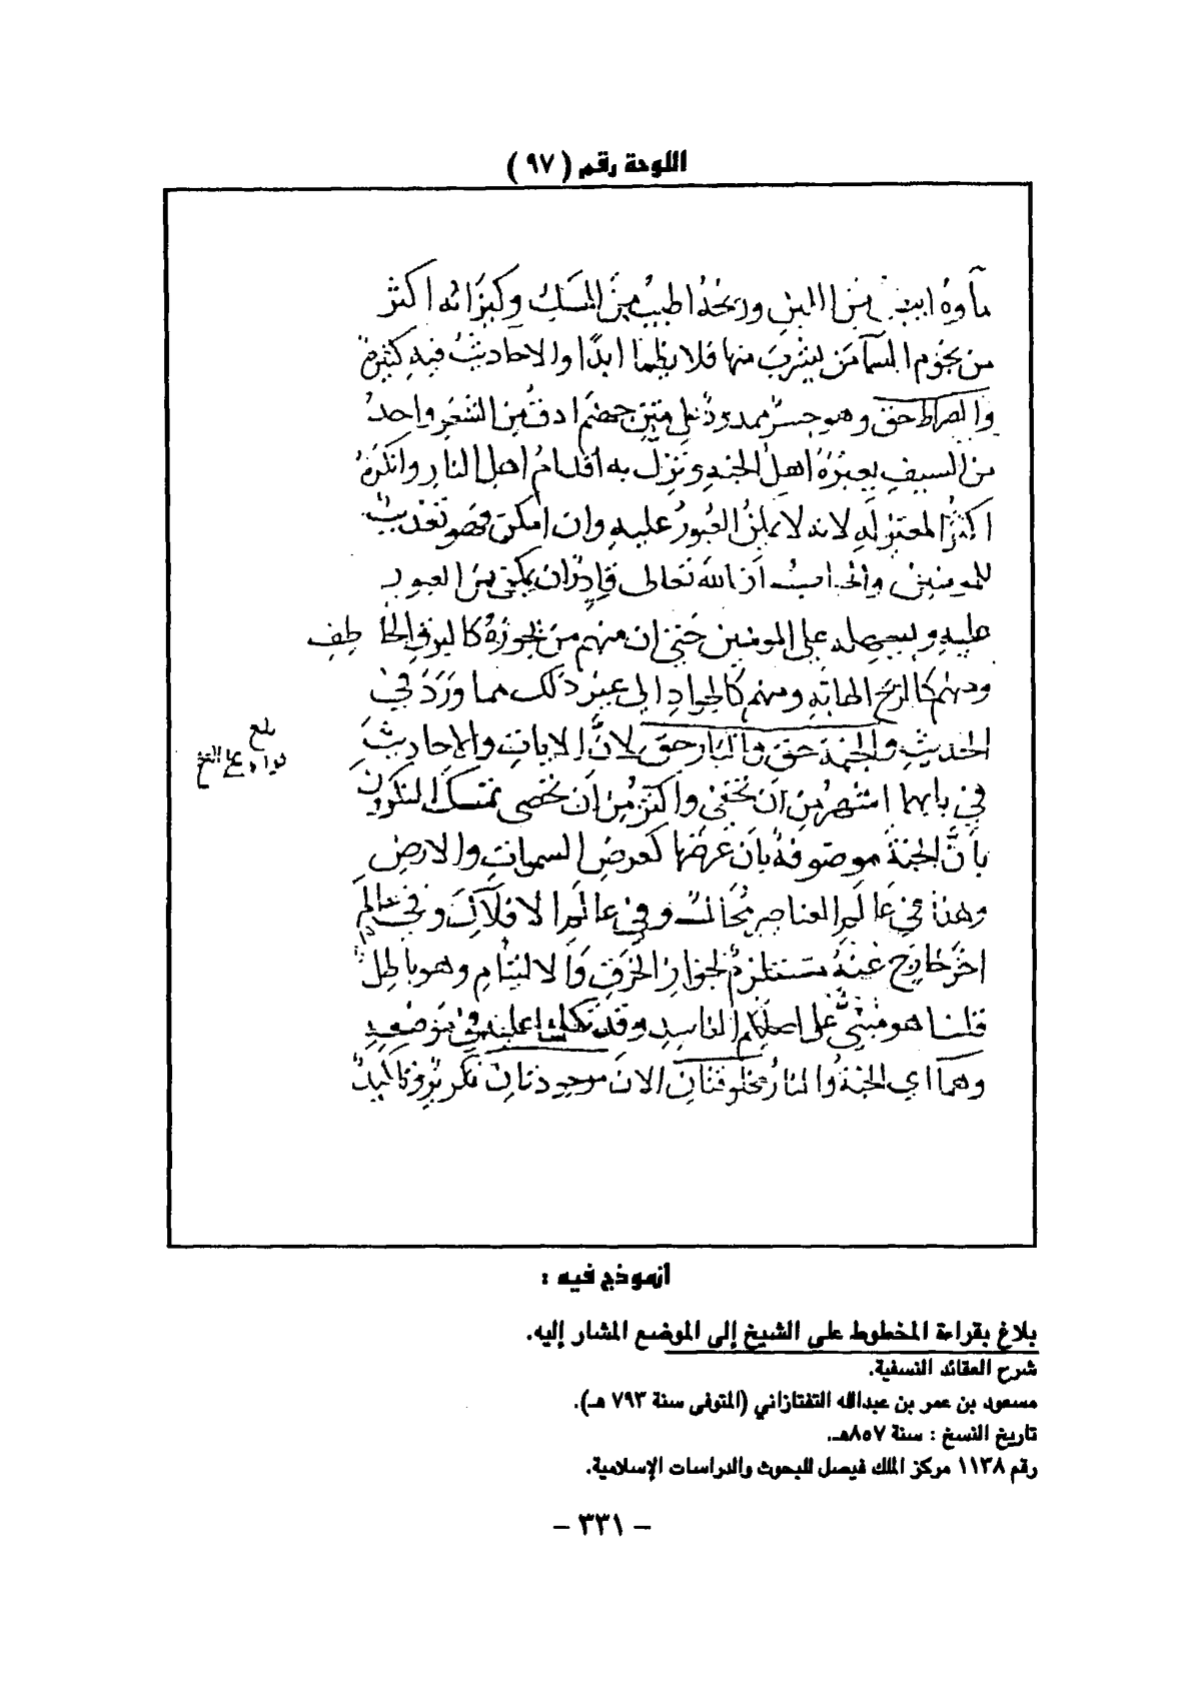 اللوحة رقم ( ٩٧ )
مآوه ابيض من اللبن وريحه اطيب من المسك وكيزانه اكثر
من نجوم السما من يشرب منها فلا يظما ابدا والاحاديث فيه كثيرة
والصراط حق وهو جسر ممدود على متن جهنم ادق من الشعر واحد
من السيف يعبره اهل الجنة وتزل به اقدام اهل النار وانكره
اكثر المعتزله لانه لا يمكن العبور عليه وان امكن فهو تعذيب
للمومنين والجواب أن الله تعالى قادر ان يمكن من العبور
عليه ويسهله على المومنين حتى ان منهم من يجوزه كالبرق الخاطف
ومنهم كالريح الهابة ومنهم كالجواد الى غير ذلك مما ورد في
الحديث والجنة حق والنار حق لان الايات والاحاديث
في بابهما اشهر من ان تخفى واكثر من ان تحصى تمسك المنكرون
بأن الجنة موصوفة بان عرضها كعرض السموات والارض
وهذا في عالم العناصر محال وفي عالم الافلاك وفي عالم
اخر خارج عنه مستلزم لجواز الخرق والالتيام وهو باطل
قلنا هو مبني على اصلكم الفاسد وقد تكلمنا عليه في موضعه
وهما اي الجنة والنار مخلوقتان الان موجودتان تكرير وتاكيد
بلغ
قراة على الشيخ
أنموذج فيه :
بلاغ بقراءة المخطوط على الشيخ إلى الموضع المشار إليه.
شرح العقائد النسفية.
مسعود بن عمر بن عبدالله التفتازاني (المتوفى سنة ٧٩٣ هـ).
تاريخ النسخ : سنة ٨٥٧هـ.
رقم ١١٣٨ مركز الملك فيصل للبحوث والدراسات الإسلامية.
– ٣٣١ –